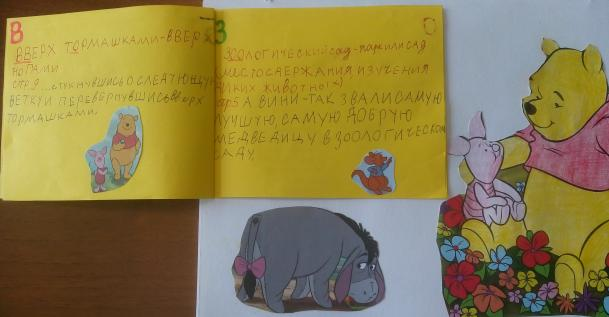 В
ВВЕРХ ТОРМАШКАМИ-ВВЕРХ
НОГАМИ
СТР 9 ...СТУКНУВШИСЬ О СЛЕДУЮЩУЮ
ВЕТКУ И ПЕРЕВЕРНУВШИСЬ ВВЕРХ
ТОРМАШКАМИ.
З О
ЗООЛОГИЧЕСКИЙ САД-ПАРК ИЛИ САД
МЕСТО СОДЕРЖАНИЯ ИЗУЧЕНИЯ
ДИКИХ ЖИВОТНЫ
5 А ВИНИ-ТАК ЗВАЛИ САМУЮ
ЛУЧШУЮ, САМУЮ ДОБРУЮ
МЕДВЕДИЦУ В ЗООЛОГИЧЕСКОМ
САДУ.